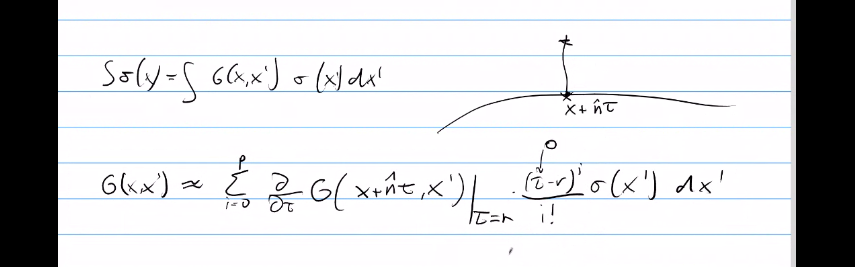 Sσ(x) = ∫ G(x,x') σ(x') dx'
x + n̂τ
0
G(x,x') ≈ Σ_{i=0}^{p} ∂/∂τ G(x+n̂τ, x')|_{τ=r} · (τ-r)^i / i! σ(x') dx'